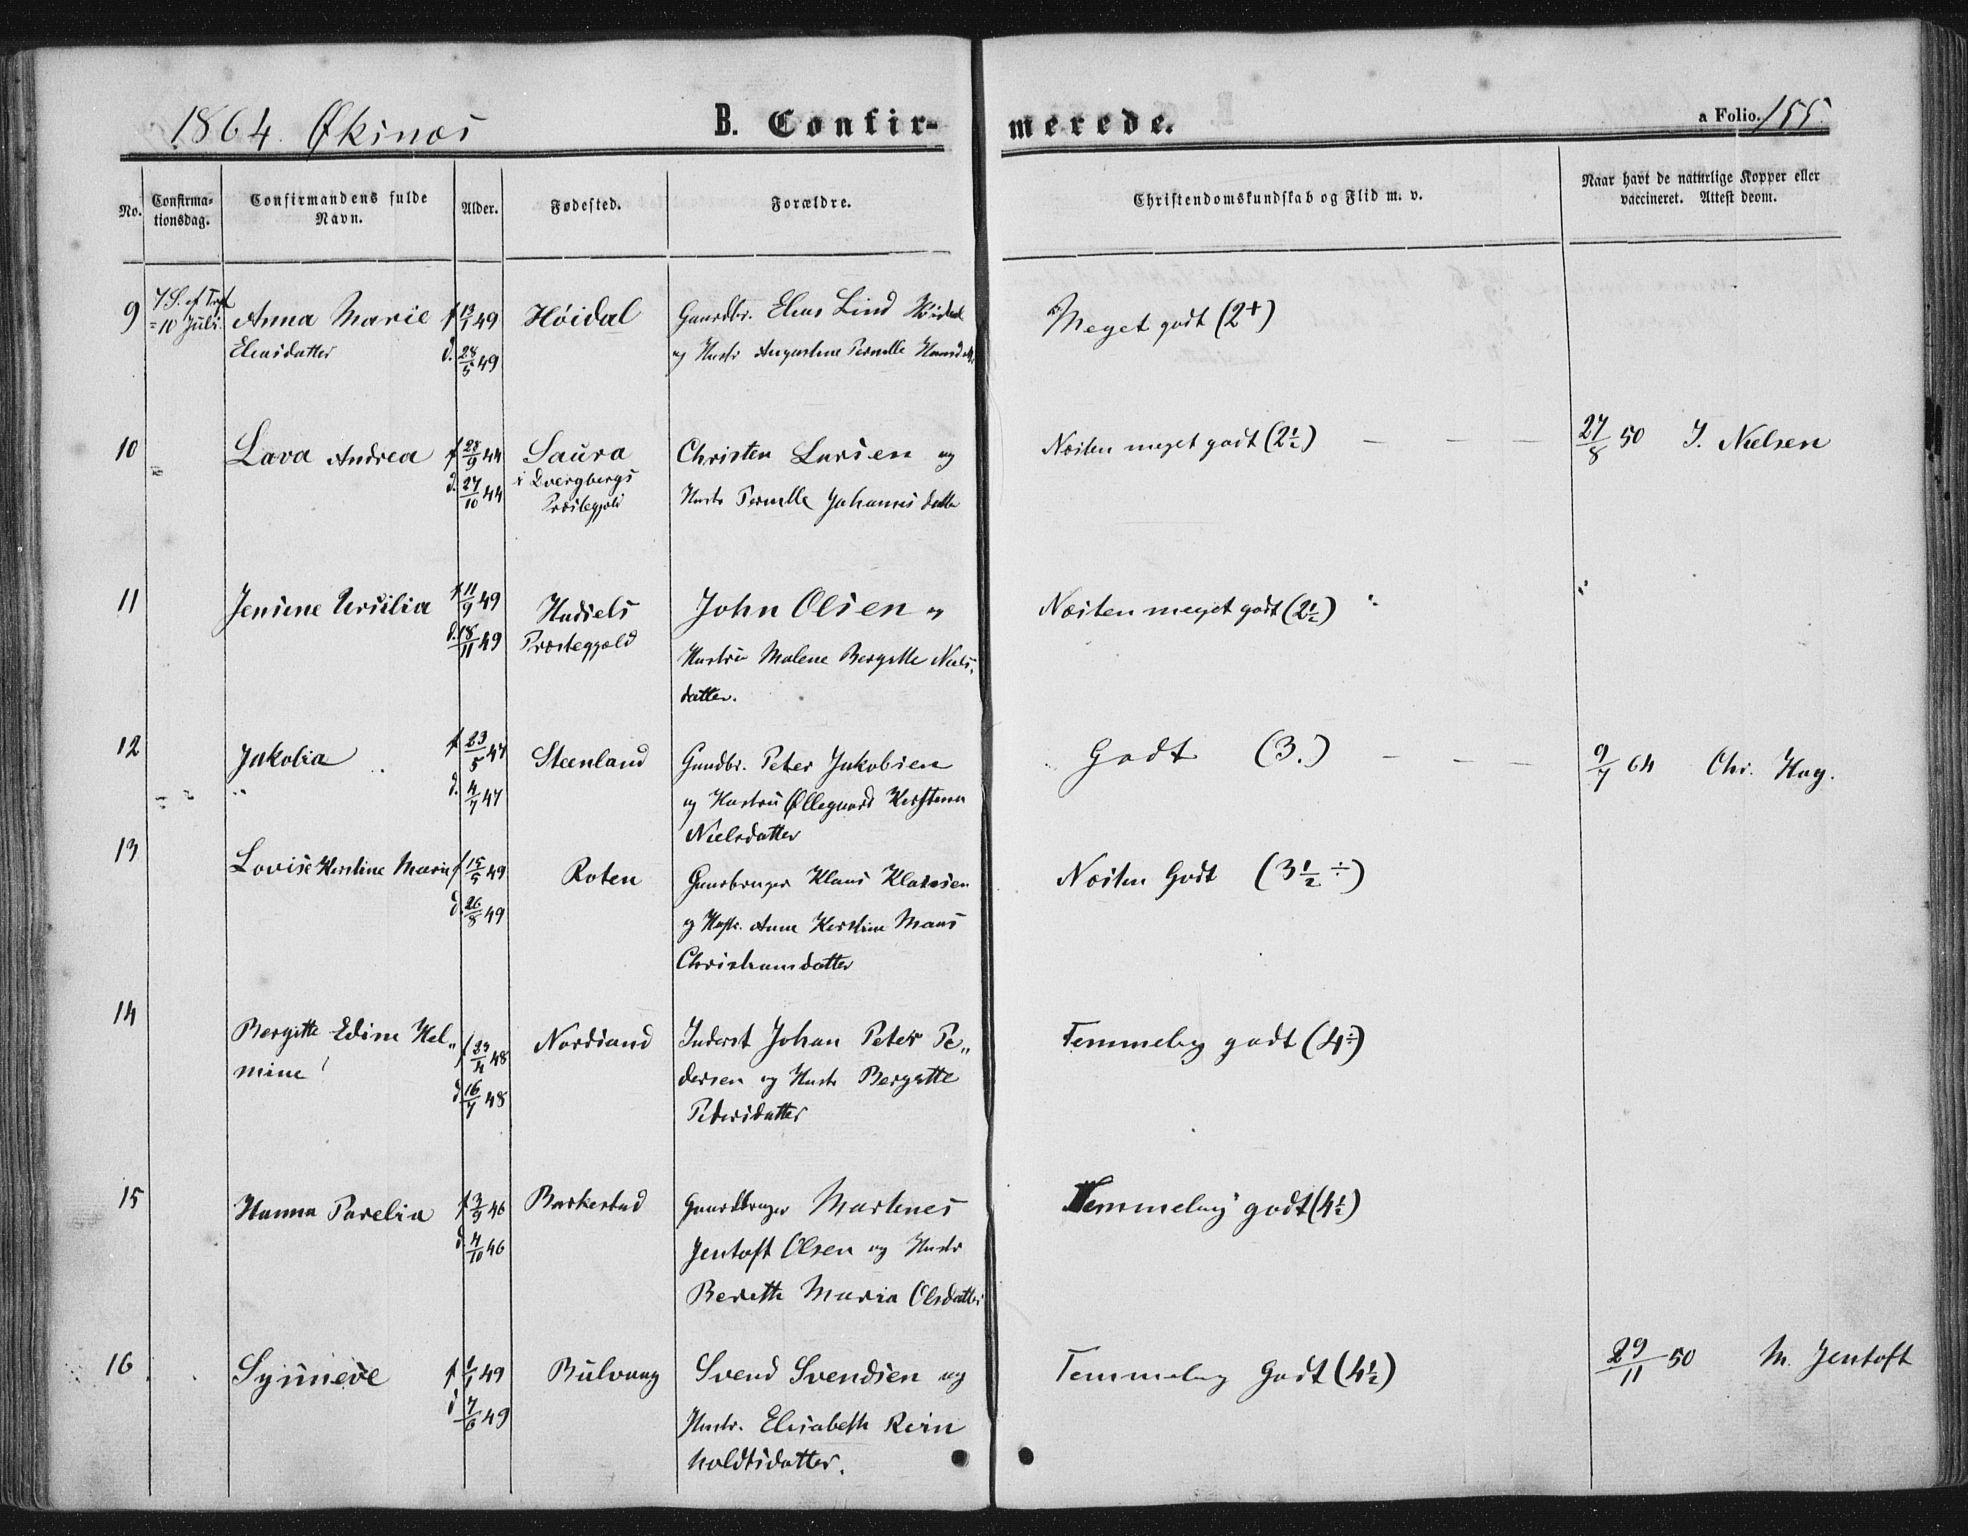 1864. Øksnæs B. Confir- merede. a Folio. 155.
No. Confirma-tionsdag. Confirmandens fulde Navn. Alder. Fødested. Forældre. Christendomskundskab og Flid m. v. Naar havt de naturlige Kopper eller vaccineret. Attest derom.
9 7 S. ef Tref Anna Marie f 13/1 49 Høidal Gaardbr. Elias Lind Høidal Meget godt (2+)
= 10 Juli. Eliasdatter d. 28/5 49 og Hustr Augustine Pernelle Hansdatter
10 Lava Andrea f 28/9 44 Saura Christen Larsen og Næsten meget godt (2½) — — — 27/8 50 J. Nielsen
d. 27/10 44 i Dverbergs Hustr Pernelle Johannesdatter
Præstegjeld
11 Jensine Ursilia f 11/9 49 Hadsels John Olsen og Næsten meget godt (2½)
d. 18/11 49 Præstegjeld Hustru Malene Bergitte Niels-
datter.
12 Jakobia f 23/5 47 Steenland Gaardbr. Peter Jakobsen Godt (3.) — — — 9/7 64 Chr. Hag.
d. 4/7 47 og Hustru Øllegaard Kirstena
Nielsdatter
13 Lovise Kirstine Marie f 15/5 49 Roten Gaardbruger Klaus Klausen Næsten Godt (3½ ÷)
d. 26/8 49 og Hustr. Anna Kerstine Maas
Christiansdatter
14 Bergitte Edine Hel„ f 23/4 48 Nordsand Inderst Johan Peter Pe„ Temmelig godt (4÷)
mine d. 16/7 48 dersen og Hustr Bergitte
Pedersdatter
15 Hanna Parelia f 3/9 46 Barkestad Gaardbruger Martines Temmelig godt (4½)
d. 4/10 46 Jentoft Olsen og Hustr
Berette Maria Olsdatter
16 Synneve f 1/1 49 Bulvaag Svend Svendsen og Temmelig Godt (4½) 29/11 50 M. Jentoft
d 7/6 49 Hustr. Elisabeth Rein
holdtsdatter.